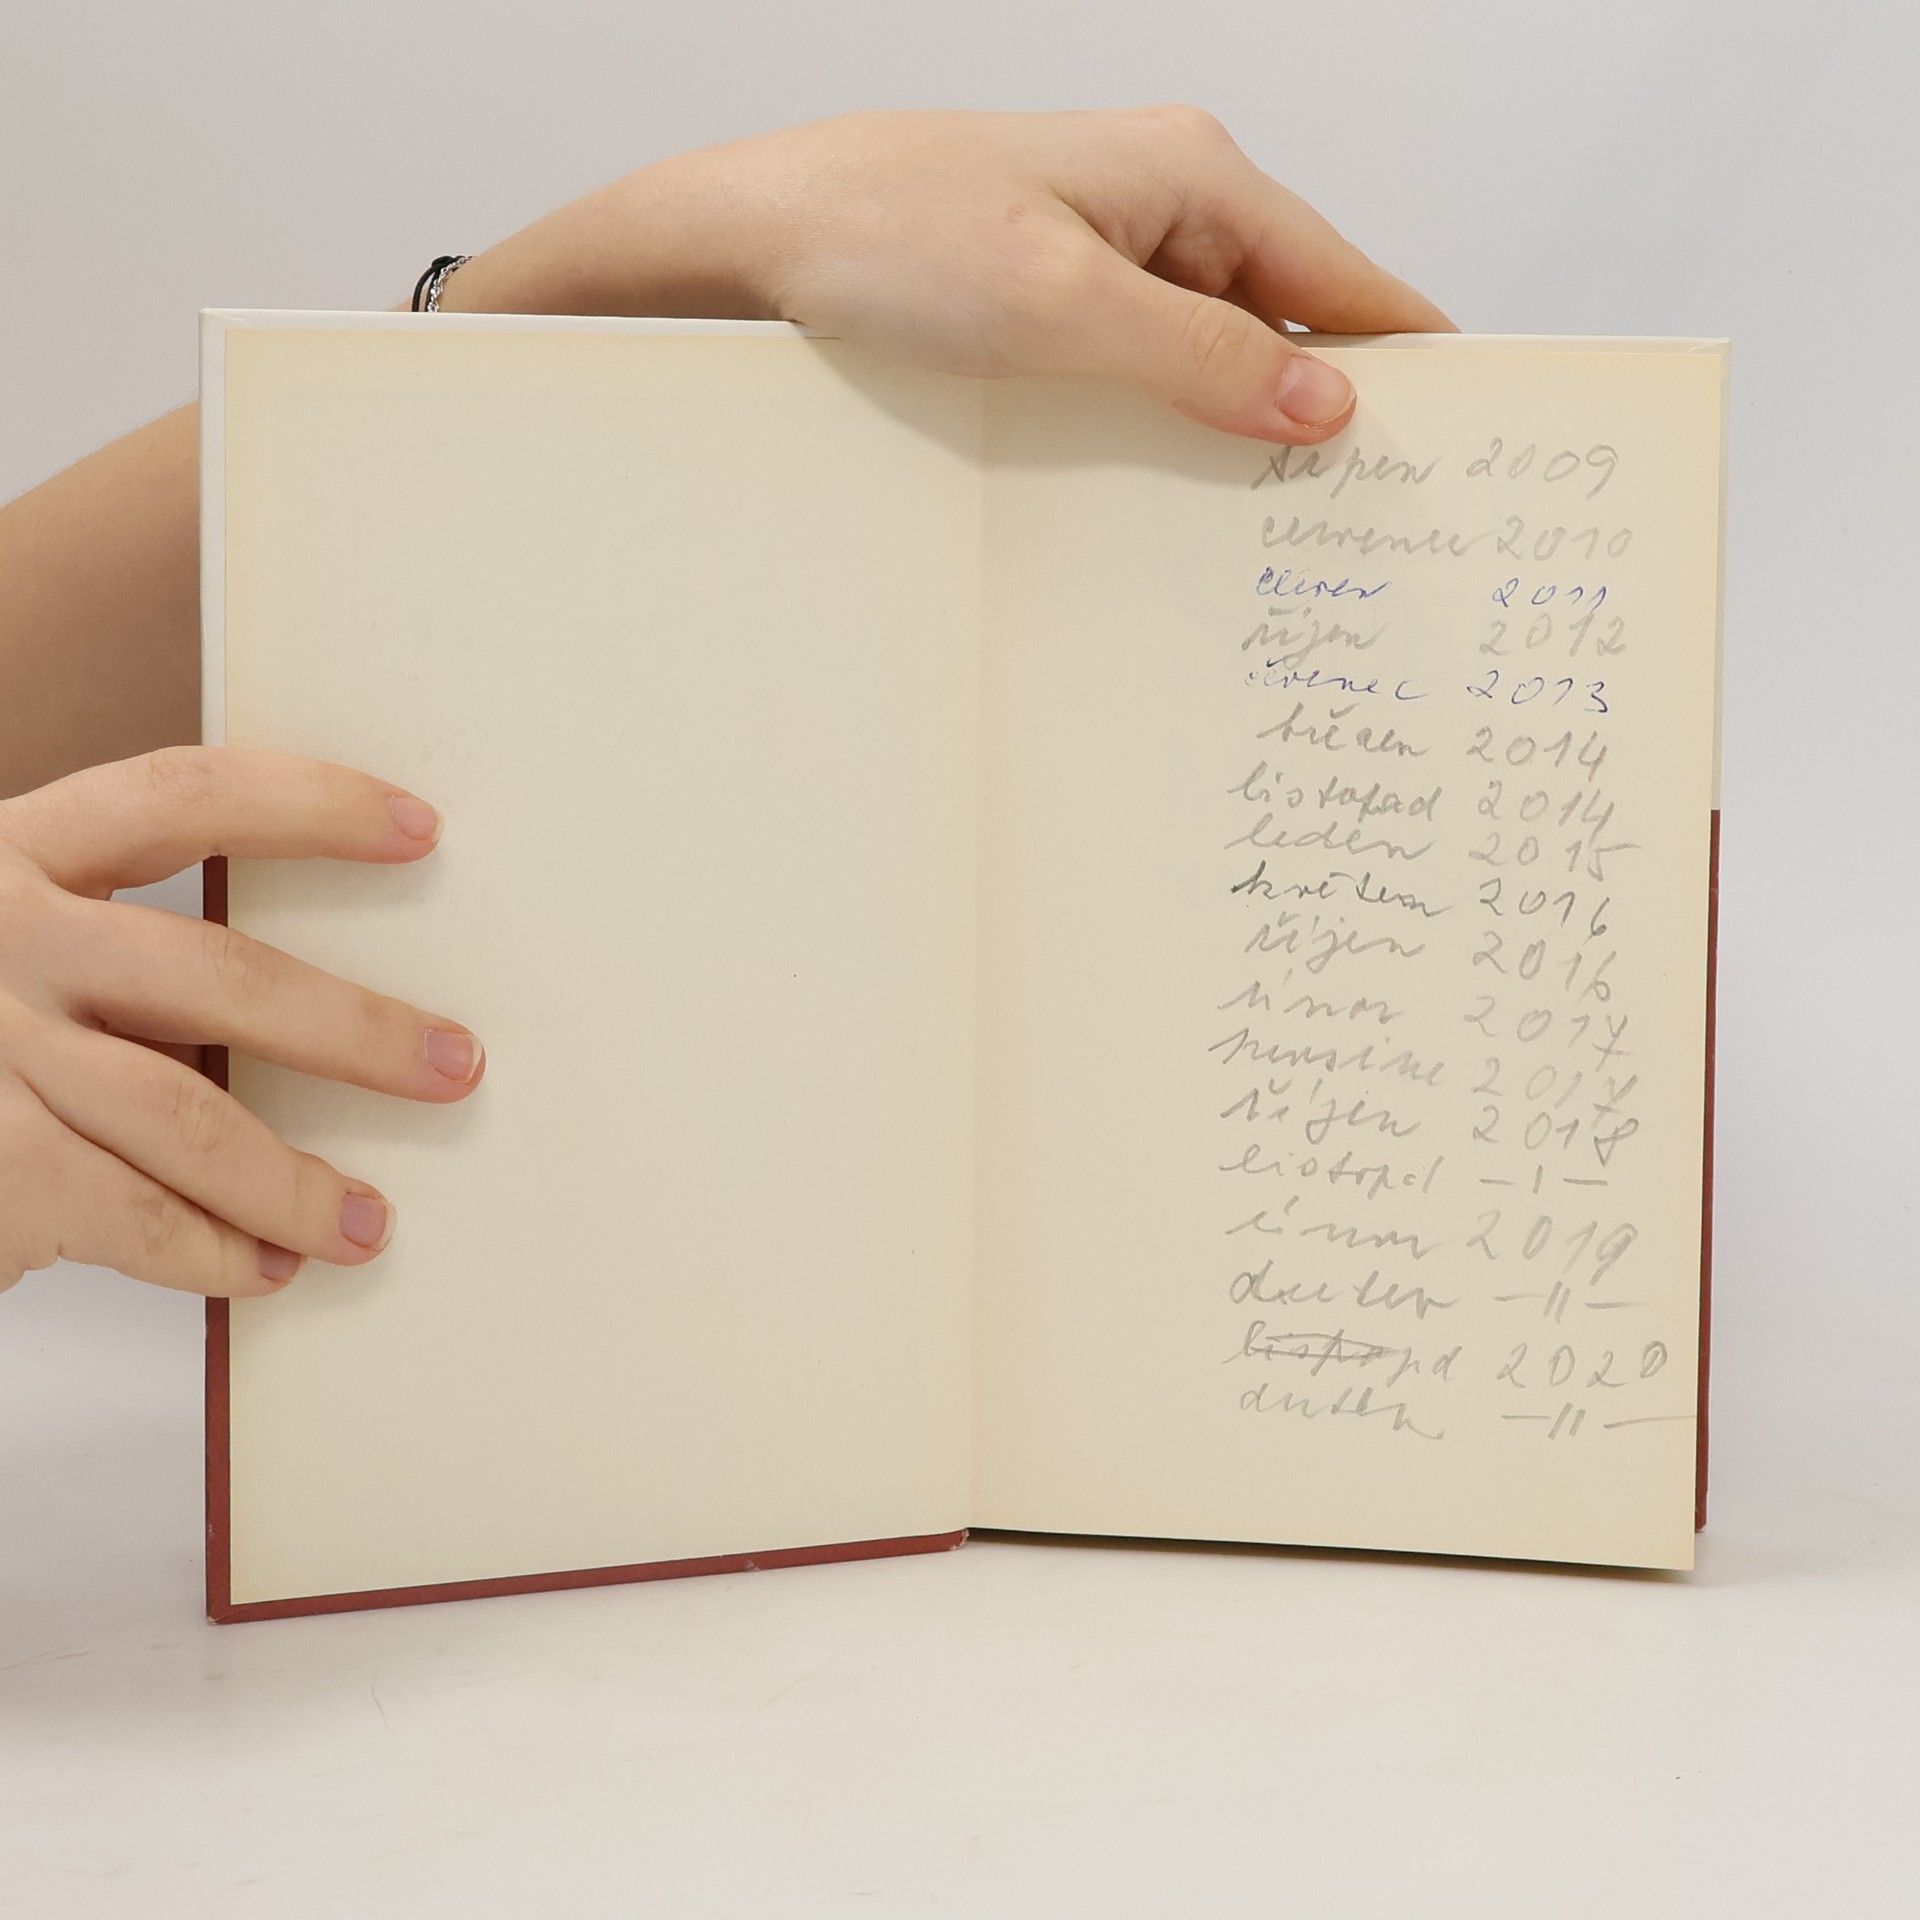 srpen 2009
červenec 2010
červen 2011
říjen 2012
červenec 2013
březen 2014
listopad 2014
leden 2015
květen 2016
říjen 2016
únor 2017
prosinec 2017
říjen 2018
listopd —ı—
únor 2019
duben —ıı—
listopd 2020
duben —ıı—